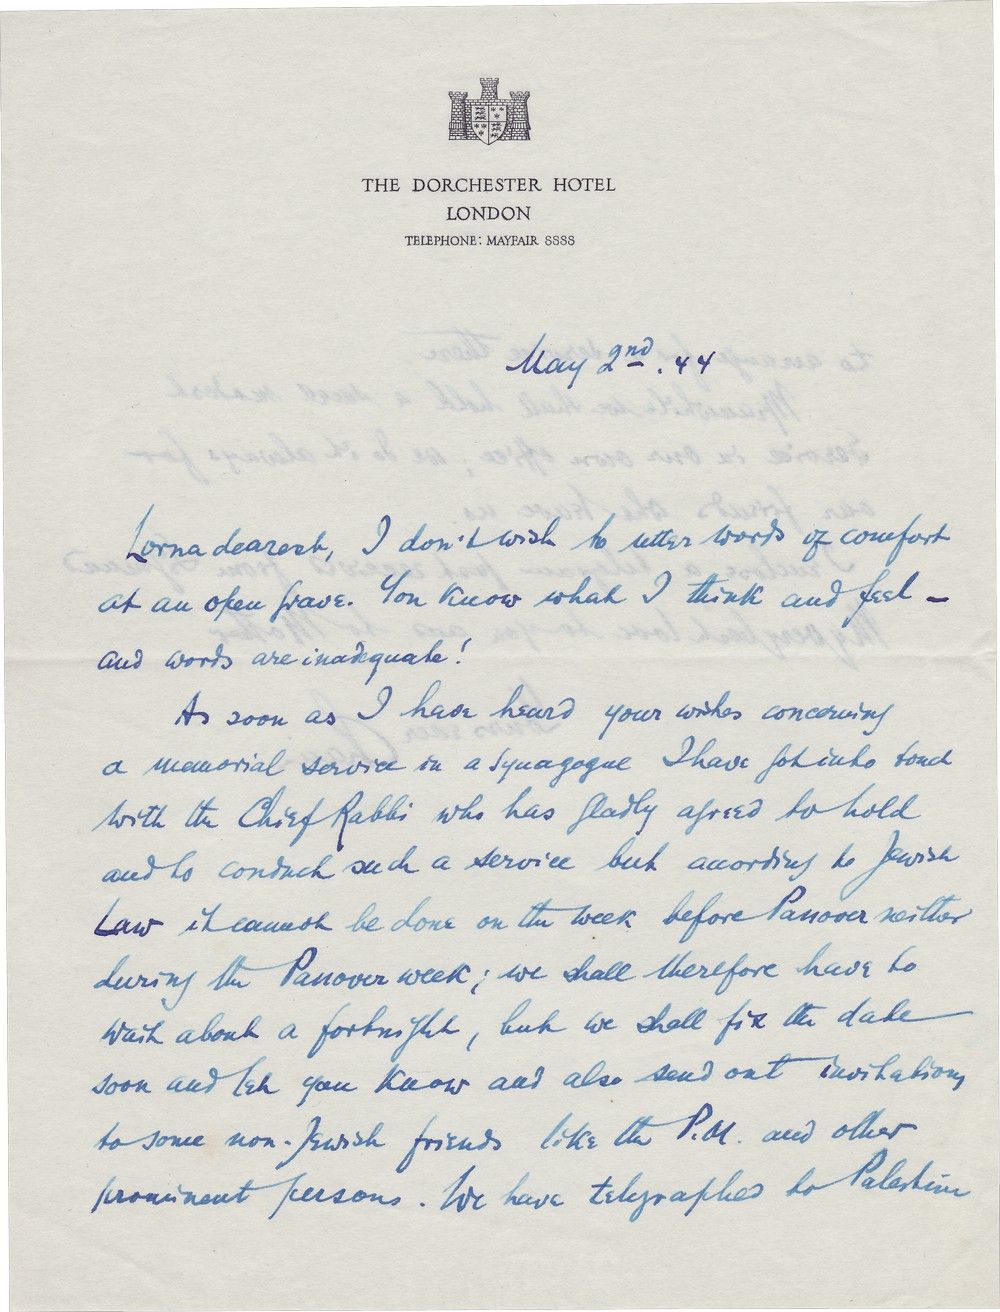 THE DORCHESTER HOTEL
LONDON
TELEPHONE: MAYFAIR 8888
May 2nd. 44
Lorna dearest, I don't wish to utter words of comfort
at an open grave. You know what I think and feel –
and words are inadequate!
As soon as I have heard your wishes concerning
a memorial service in a synagogue I have got into touch
with the Chief Rabbi who has gladly agreed to hold
and to conduct such a service but according to Jewish
Law it cannot be done on the week before Passover neither
during the Passover week; we shall therefore have to
wait about a fortnight, but we shall fix the date
soon and let you know and also send out invitations
to some non-Jewish friends like the P.M. and other
prominent persons. We have telegraphed to Palestine